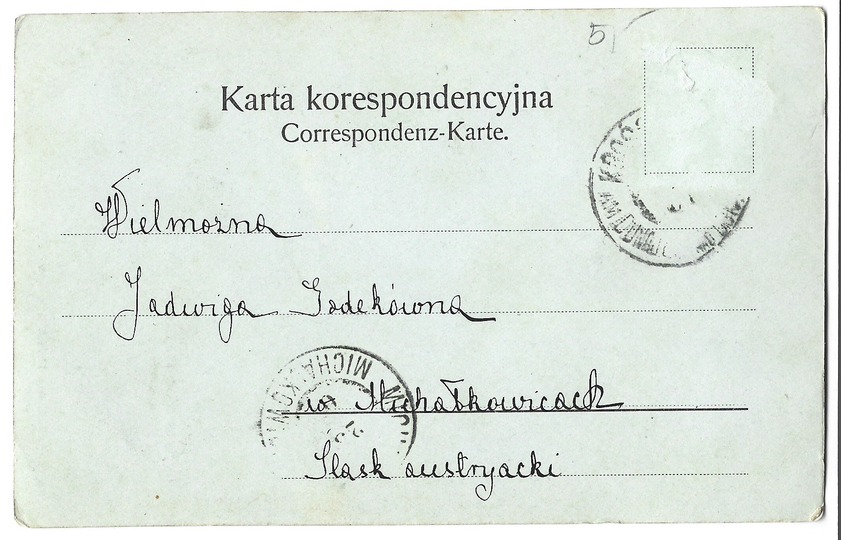 5
Karta korespondencyjna
Correspondenz-Karte.
Wielmożna
Jadwiga Godekówna
w Michałkowicach
Śląsk austryacki